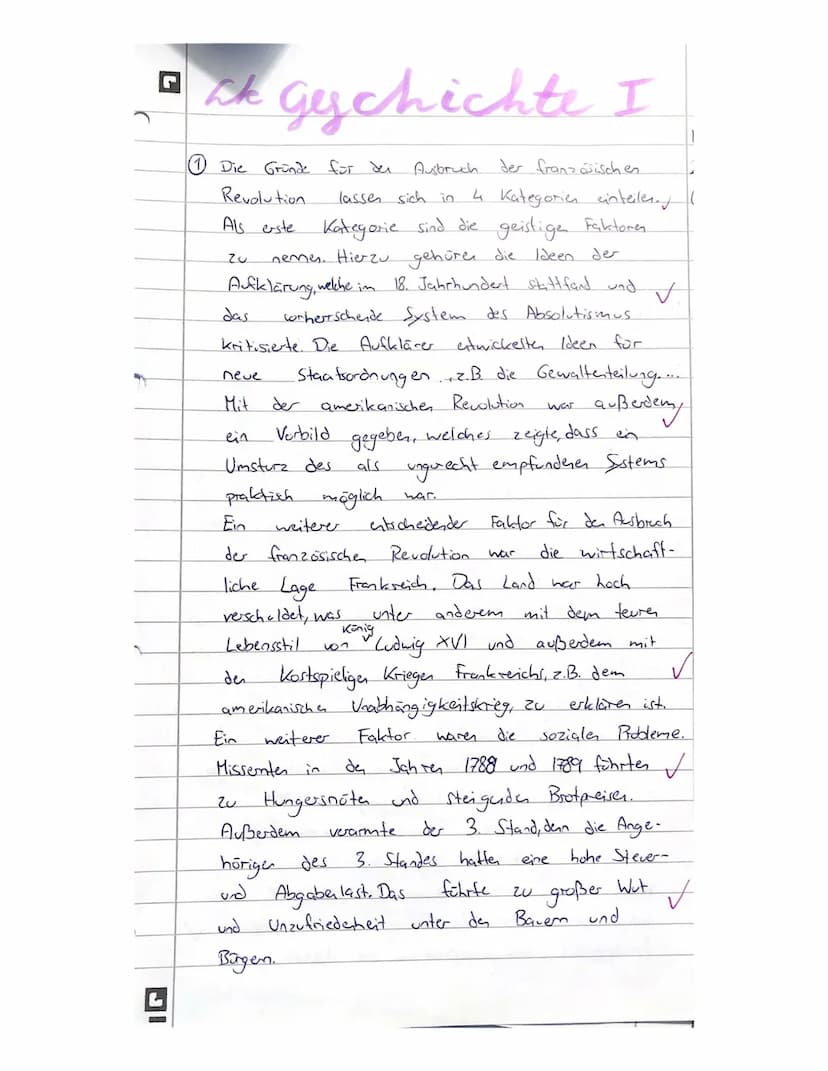 Lk Geschichte I
① Die Gründe für den Ausbruch der französischen
Revolution lassen sich in 4 Kategorien einteilen.
Als erste Kategorie sind die geistigen Faktoren
zu nennen. Hierzu gehören die Ideen der
Aufklärung, welche im 18. Jahrhundert stattfand und
das vorherrschende System des Absolutismus
kritisierte. Die Aufklärer entwickelten Ideen für
neue Staatsordnungen, z.B. die Gewaltenteilung...
Mit der amerikanischen Revolution war außerdem
ein Vorbild gegeben, welches zeigte, dass ein
Umsturz des als ungerecht empfundenen Systems
praktisch möglich war.
Ein weiterer entscheidender Faktor für den Ausbruch
der französischen Revolution war die wirtschaft-
liche Lage Frankreich. Das Land war hoch
verschuldet, was unter anderem mit dem teuren
Lebensstil von König Ludwig XVI und außerdem mit
den kostspieligen Kriegen Frankreichs, z.B. dem
amerikanischen Unabhängigkeitskrieg, zu erklären ist.
Ein weiterer Faktor waren die sozialen Probleme.
Missernten in den Jahren 1788 und 1789 führten
zu Hungersnöten und steigenden Brotpreisen.
Außerdem verarmte der 3. Stand, denn die Ange-
hörigen des 3. Standes hatten eine hohe Steuer-
und Abgabenlast. Das führte zu großer Wut
und Unzufriedenheit unter den Bauern und
Bürgern.